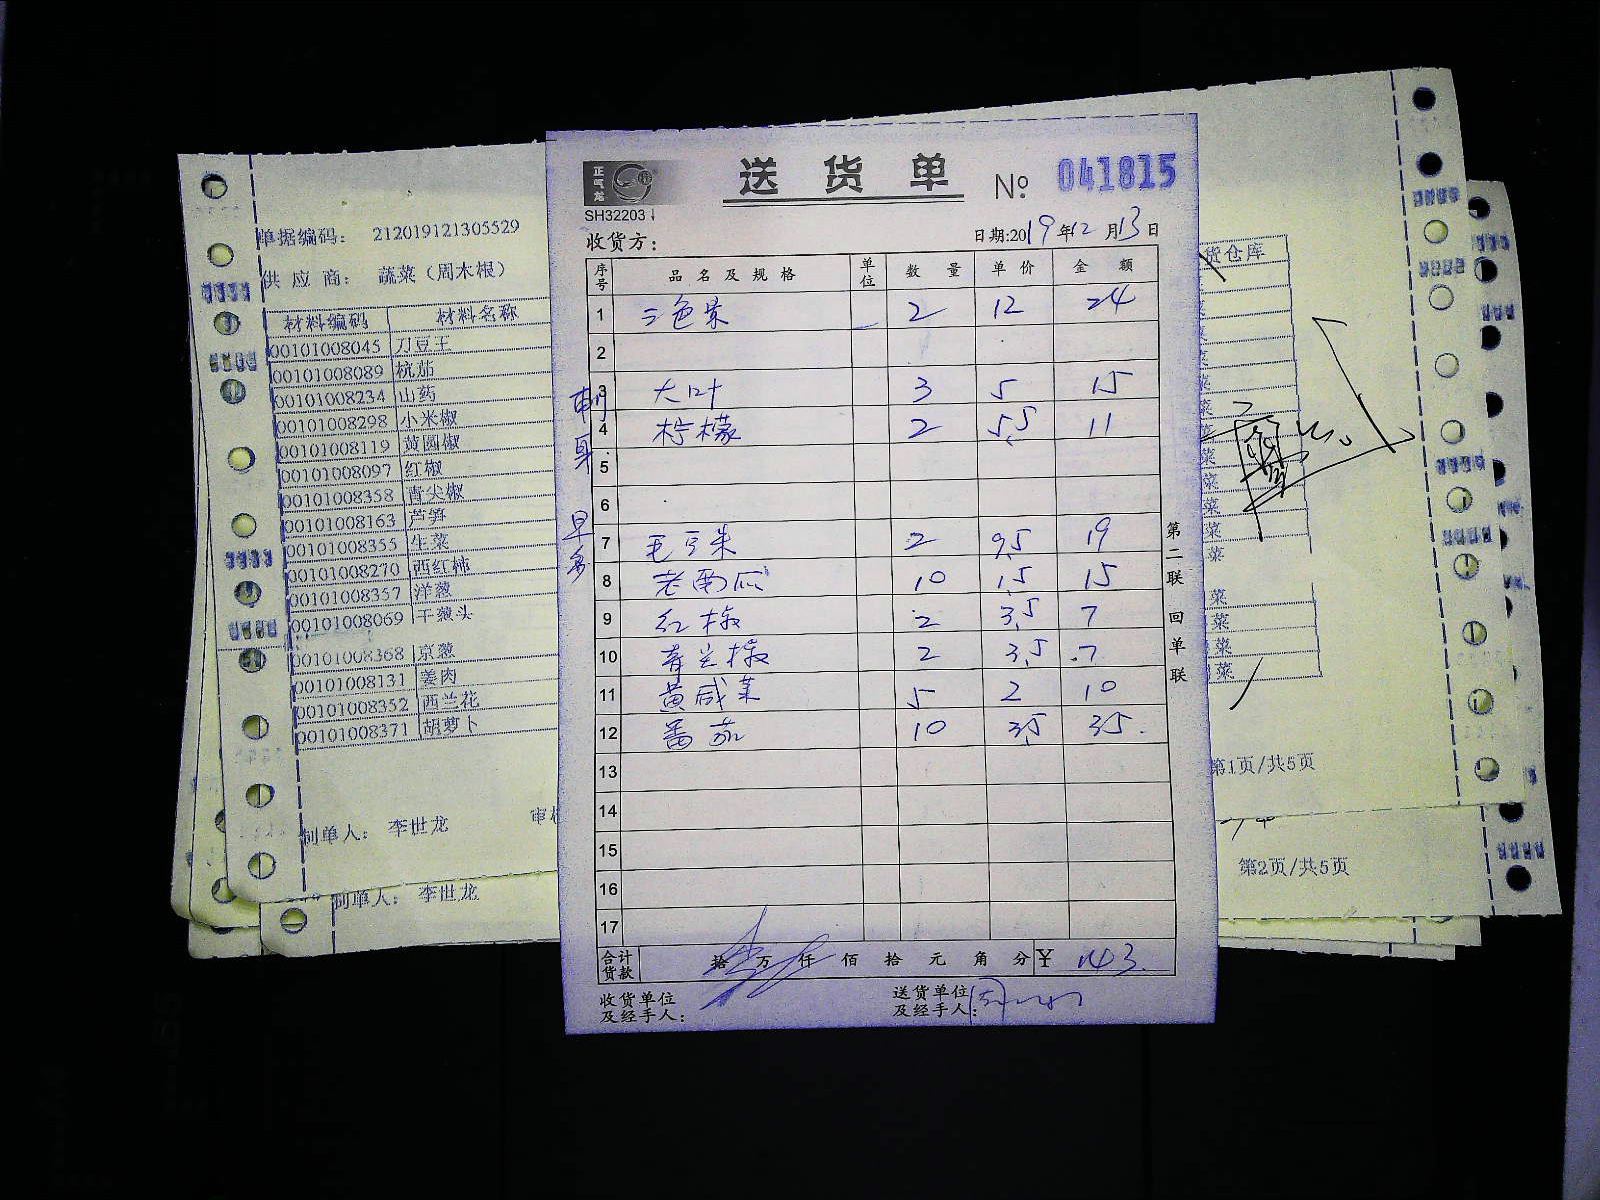 正气龙
SH32203
送货单
№ 041815
收货方：
日期:2019年12月13日
序号 品名及规格 单位 数量 单价 金额
1 三色景 2 12 24
2
3 大叶 3 5 15
4 柠檬 2 5.5 11
5
6
7 毛豆米 2 9.5 19
8 老南瓜 10 1.5 15
9 红椒 2 3.5 7
10 青尖椒 2 3.5 7
11 黄咸菜 5 2 10
12 番茄 10 3.5 35
13
14
15
16
17
合计货款 拾 万 仟 佰 拾 元 角 分 ¥ 143
收货单位及经手人：
送货单位及经手人：
第二联 回单联
早多
单据编码： 212019121305529
供应商： 蔬菜（周木根）
材料编码 材料名称
00101008045 刀豆王
00101008089 杭茄
00101008234 山药
00101008298 小米椒
00101008119 黄圆椒
00101008097 红椒
00101008358 青尖椒
00101008163 芦笋
00101008355 生菜
00101008270 西红柿
00101008357 洋葱
00101008069 干葱头
00101008368 京葱
00101008131 姜肉
00101008352 西兰花
00101008371 胡萝卜
制单人： 李世龙
审
制单人： 李世龙
货仓库
菜
菜
菜
菜
菜
菜
菜
菜
菜
菜
菜
第1页/共5页
第2页/共5页